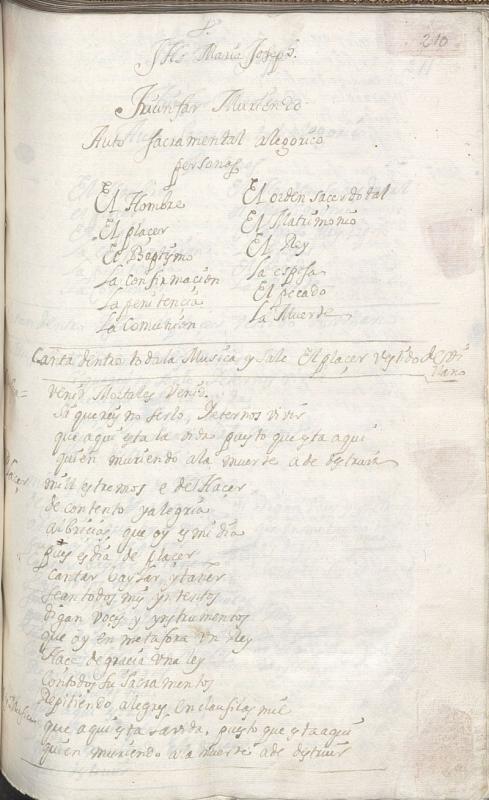 210
JHS Maria Joseph.
Triunfar Muriendo
Auto sacramental alegorico
personas
El Hombre
El placer
El Baptismo
La confirmacion
La penitencia
La Comunion
El orden sacerdotal
El Matrimonio
El Rey
La esposa
El pecado
La Muerte
Canta dentro toda la Musica y sale El placer vestido de
llano
Venid, Mortales Venid.
si quereys no serlo, Heternos vivir
que aqui esta la vida puesto que esta aqui
quien muriendo a la muerte a de destruir
mill estremos e de Hacer
de contento y alegria
albricias que oy es mi dia
pues es dia de placer
cantar baylar y tañer
sean todos mis yntentos
digan voces y ynstrumentos
que oy en metafora vn Rey
Hace de gracia vna ley
con todos su sacramentos
Repitiendo alegres En clausulas mil
que aqui esta la vida, puesto que esta aqui
quien muriendo a la muerte a de destruir